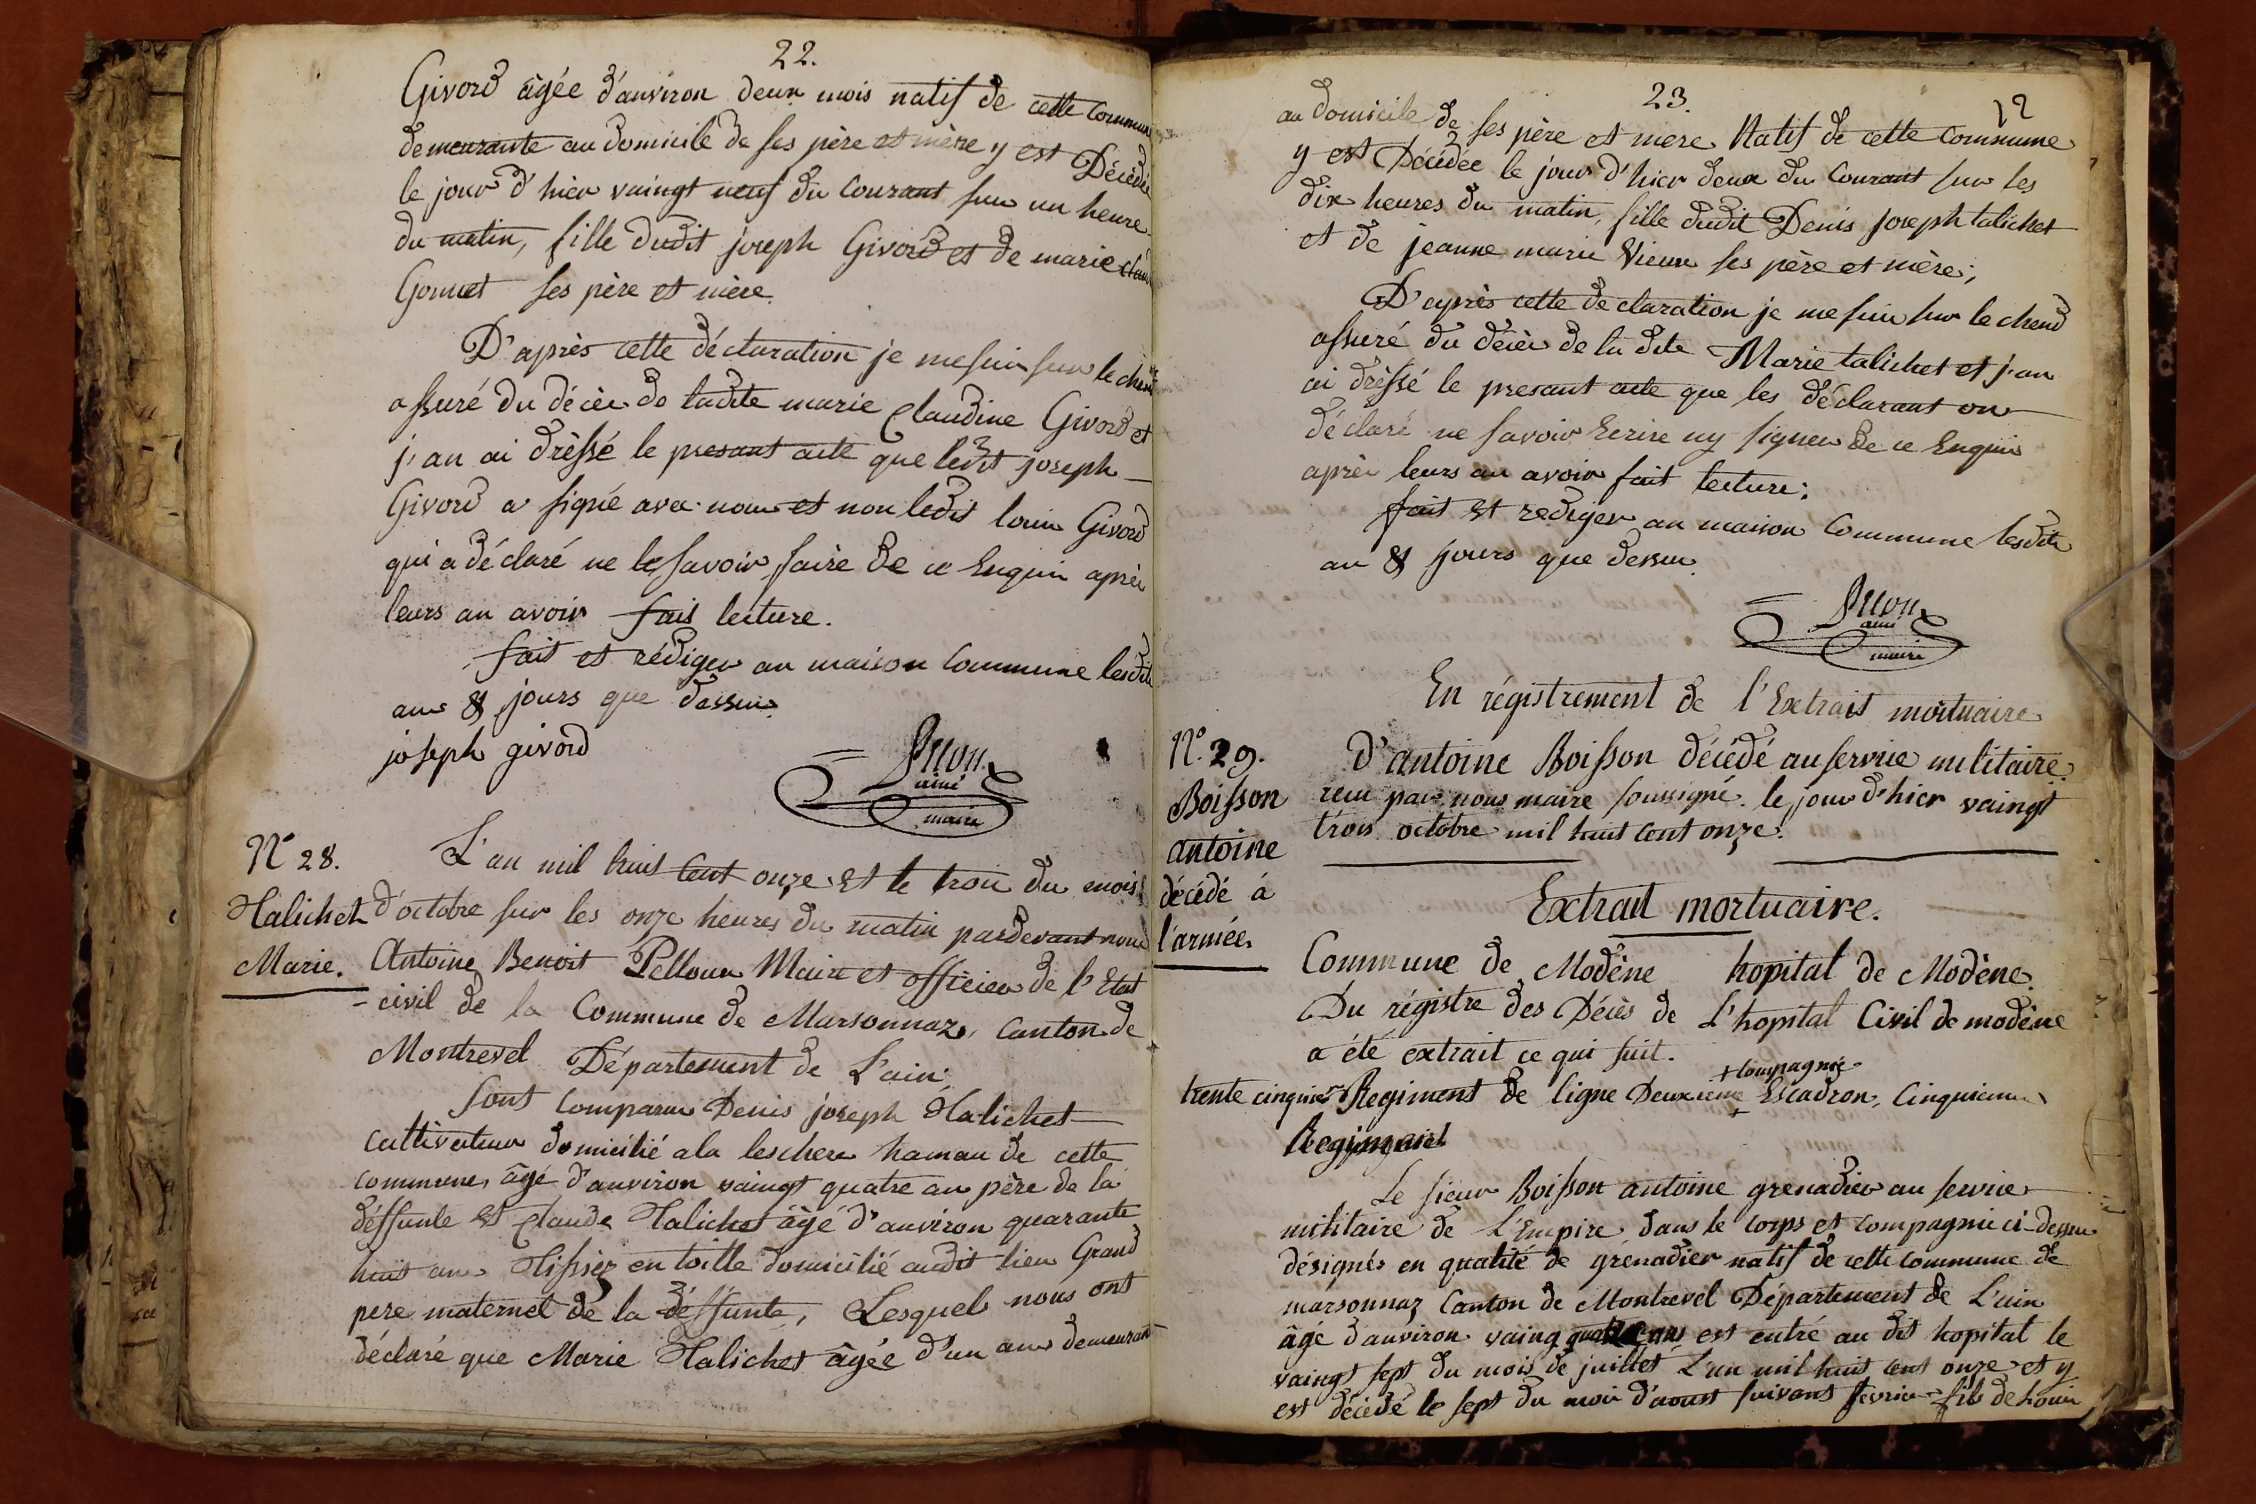 22.
Givord âgée d'anviron deux mois natif de cette Commune
demeurante au domicile de ses père et mère y est Décédée
le jour d'hier vaingt neuf du Courant sur un heure
du matin, fille dudit joseph Givord et de marie
Gonnet ses père et mère.
D'après cette déclaration je me suis sur le cham
assuré du décès de ladite marie Claudine Givord et
j'an ai drêssé le presant acte que ledit joseph
Givord a signé avec nous et non ledit louis Givord
qui a déclaré ne le savoir faire de ce Enquis après
leurs an avoir fais lecture.
fait et rédiger an maison Commune lesdits
ans & jours que dessus.
joseph givord
ainé
maire
N° 28.
Halichet
Marie.
L'an mil huit Cent onze et le trois du mois
d'octobre sur les onze heures du matin pardevant nous
Antoine Benoit Pelloux Maire et officier de l'Etat
civil de la Commune de Marsonnaz, Canton de
Montrevel Département de L'ain;
sont Comparus Denis joseph Halichet
cultivateur domicilié a la leschere hamau de cette
commune, âgé d'anviron vaingt quatre an père de la
déffunte et Claude Halichet âgé d'anviron quarante
huit ans Tissier en toille domicilié audit lieu Grand
pere maternel de la déffunte, Lesquels nous ont
déclaré que Marie Halichet âgée d'un ans demeurant
23. 12
au domicile de ses père et mere Natif de cette commune
y est Décédée le jour d'hier deux du Courant sur les
dix heures du matin, fille dudit Denis Joseph talichet
et de jeanne marie Vieux ses père et mère;
D'après cette declaration je me suis sur le chend
assuré du décès de la dite Marie talichet et j'an
ai drêssé le presant acte que les déclarant on
déclaré ne savoir Ecrire ny signer de ce Enquis
après leurs an avoir fait lecture;
fait et rediger an maison Commune lesdits
an & jours que dessus.
ainé
maire
En régistrement de l'Extrait mortuaire
N°. 29.
Boisson
antoine
décédé à
l'armée.
D'antoine Boisson décédé au service militaire.
recu par nous maire soussigné. le jour d'hier vaingt
trois octobre mil huit cent onze.
Extrait mortuaire.
Commune de Modêne hopital de Modêne.
Du régistre des Décès de L'hopital Civil de modêne
a été extrait ce qui suit.
+ Compagnie
trente cinquième Regiment de ligne Deuxieme + Escadron, Cinquieme
Regiment
Le sieur Boisson antoine grenadier au service
militaire de L'Empire dans le corps et compagnie ci-dessus
désignés en qualité de grénadier natif de cette commune de
marsonnaz Canton de Montrevel Département de L'ain
âgé d'anviron vaing quatre ans est entré au dit hopital le
vaingt sept du mois de juillet L'an mil huit cent onze et y
est décédé le sept du mois d'aoust suivant fievrier fils de Louis